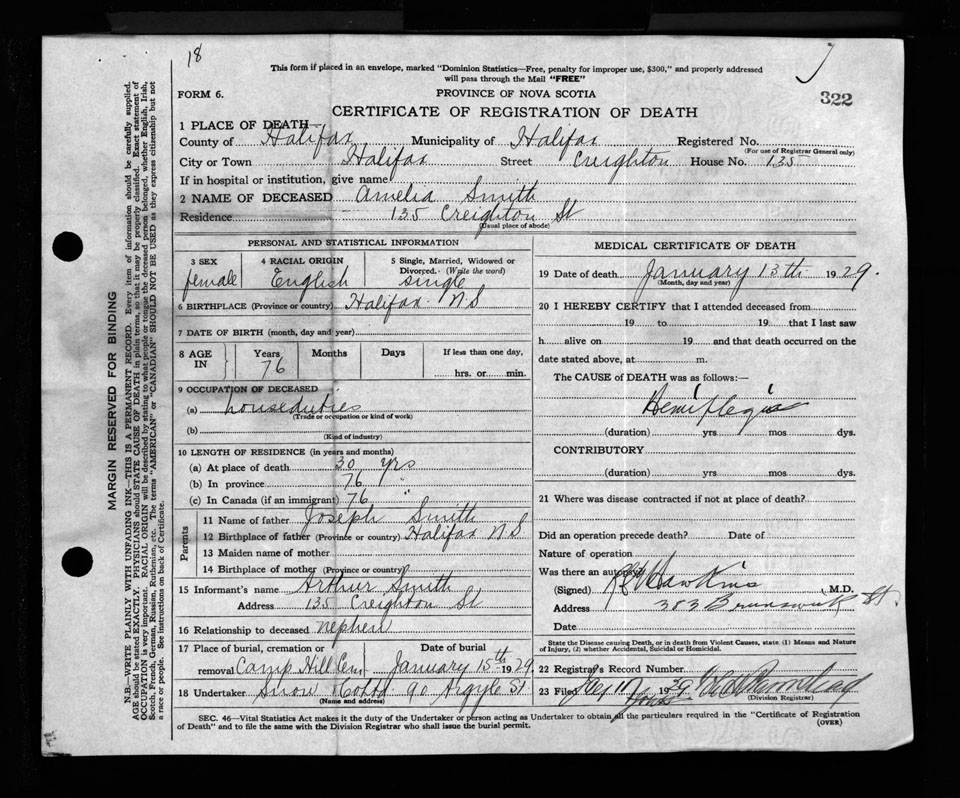 18
This form if placed in an envelope, marked "Dominion Statistics—Free, penalty for improper use, $300," and properly addressed
will pass through the Mail "FREE"
FORM 6.
PROVINCE OF NOVA SCOTIA
322
CERTIFICATE OF REGISTRATION OF DEATH
1 PLACE OF DEATH—
County of Halifax Municipality of Halifax Registered No.
(For use of Registrar General only)
City or Town Halifax Street Creighton House No. 135
If in hospital or institution, give name
2 NAME OF DECEASED Amelia Smith
Residence 135 Creighton St
(Usual place of abode)
PERSONAL AND STATISTICAL INFORMATION
3 SEX female
4 RACIAL ORIGIN English
5 Single, Married, Widowed or Divorced. (Write the word) Single
6 BIRTHPLACE (Province or country) Halifax N.S
7 DATE OF BIRTH (month, day and year)
8 AGE IN Years Months Days If less than one day,
76 hrs. or min.
9 OCCUPATION OF DECEASED
(a) houseduties
(Trade or occupation or kind of work)
(b)
(Kind of industry)
10 LENGTH OF RESIDENCE (in years and months)
(a) At place of death 30 yrs
(b) In province 76 "
(c) In Canada (if an immigrant) 76
Parents
11 Name of father Joseph Smith
12 Birthplace of father (Province or country) Halifax N S
13 Maiden name of mother
14 Birthplace of mother (Province or country)
15 Informant's name Arthur Smith
Address 135 Creighton St
16 Relationship to deceased nephew
17 Place of burial, cremation or removal Camp Hill Cem
Date of burial January 15th 1929
18 Undertaker Snow & Co Ltd 90 Argyle St
(Name and address)
MEDICAL CERTIFICATE OF DEATH
19 Date of death January 13th 1929.
(Month, day and year)
20 I HEREBY CERTIFY that I attended deceased from
19 to 19 that I last saw
h alive on 19 and that death occurred on the
date stated above, at m.
The CAUSE of DEATH was as follows:—
Hemiplegia
(duration) yrs mos dys.
CONTRIBUTORY
(duration) yrs mos dys.
21 Where was disease contracted if not at place of death?
Did an operation precede death? Date of
Nature of operation
Was there an autopsy?
(Signed) Hawkins M.D.
Address 383 Brunswick St.
Date
State the Disease causing Death, or in death from Violent Causes, state (1) Means and Nature
of Injury, (2) whether Accidental, Suicidal or Homicidal.
22 Registrar's Record Number
23 Filed 1929
(Division Registrar)
SEC. 46—Vital Statistics Act makes it the duty of the Undertaker or person acting as Undertaker to obtain all the particulars required in the "Certificate of Registration
of Death" and to file the same with the Division Registrar who shall issue the burial permit.
(OVER)
MARGIN RESERVED FOR BINDING
N.B.—WRITE PLAINLY WITH UNFADING INK—THIS IS A PERMANENT RECORD. Every item of information should be carefully supplied.
AGE should be stated EXACTLY. PHYSICIANS should STATE CAUSE OF DEATH in plain terms, so that it may be properly classified. Exact statement of
OCCUPATION is very important. RACIAL ORIGIN will be described by stating to what people or tongue the deceased person belonged, whether English, Irish,
Scotch, French, German, Russian, Ruthenian, etc. The terms "AMERICAN" or "CANADIAN" SHOULD NOT BE USED as they express citizenship but not
a race or people. See instructions on back of Certificate.